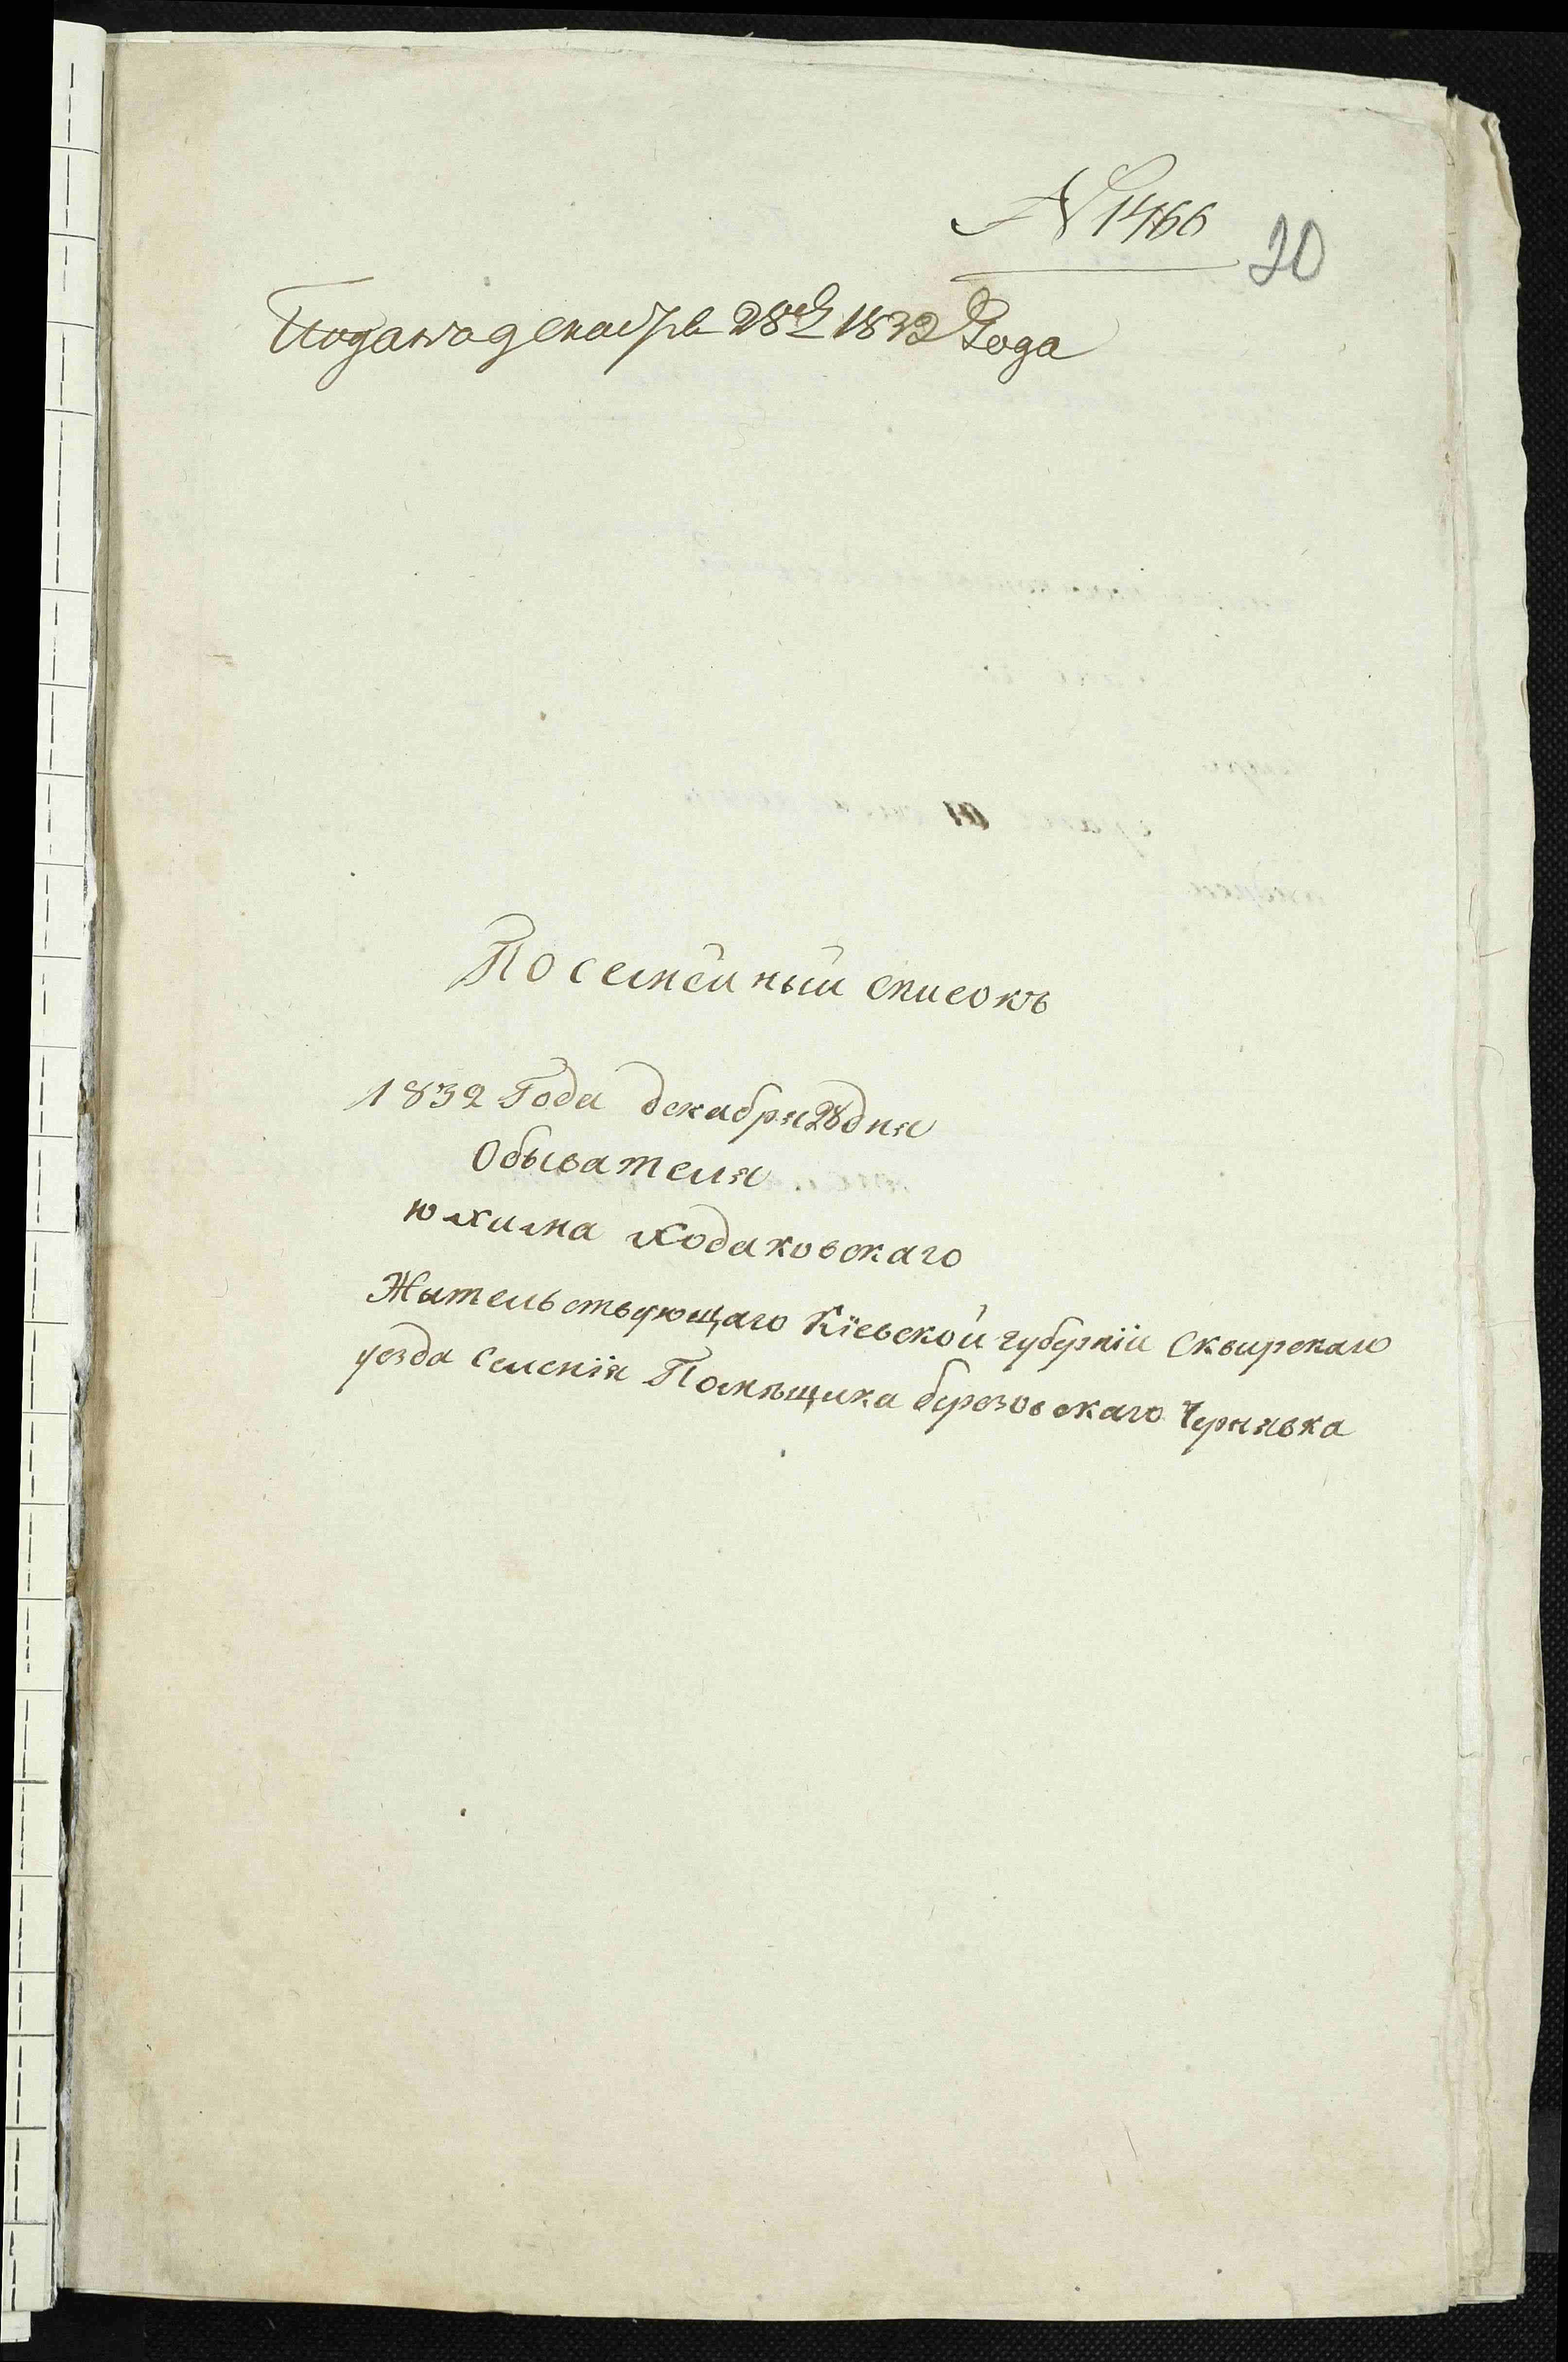 № 1466
20
Подана декабря 28го 1832 Года
Посемейный списокъ
1832 Года декабря 28 дня
Обывателя
юхима Ходаковскаго
Жытельствующаго Кіевской губерніи Сквирскаго
уезда Селенія Помѣщика березовскаго Чернявка